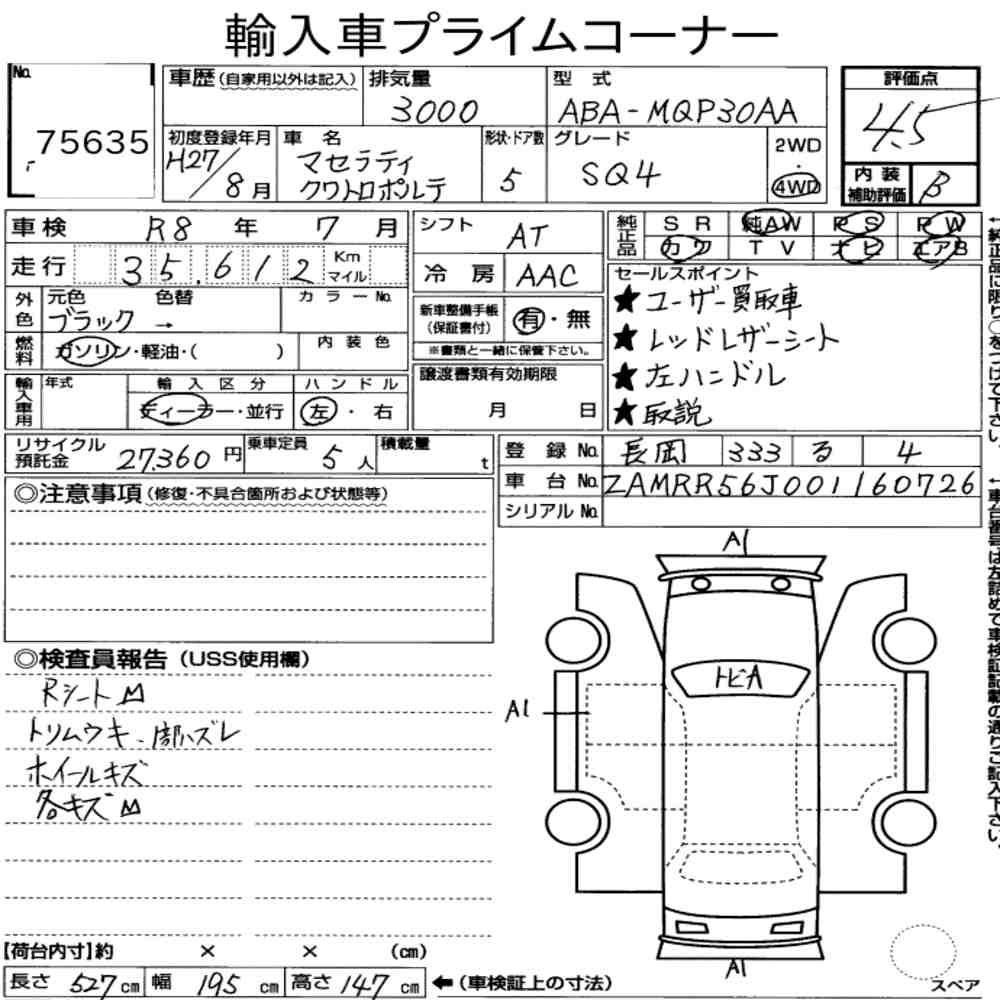 輸入車プライムコーナー
No. 75635
車歴 (自家用以外は記入)
排気量 3000
型式 ABA-MQP30AA
評価点 4.5
初度登録年月 H27/8月
車名 マセラティ クワトロポルテ
形状・ドア数 5
グレード SQ4
2WD・4WD
内装補助評価 B
車検 R8年 7月
シフト AT
純正品 SR 純AW PS PW
カワ TV ナビ エアB
走行 35,612 Km マイル
冷房 AAC
セールスポイント
★ユーザー買取車
★レッドレザーシート
★左ハンドル
★取説
外色 元色 色替 カラーNo.
ブラック →
新車整備手帳(保証書付) 有・無
※書類と一緒に保管下さい。
燃料 ガソリン・軽油・( )
内装色
譲渡書類有効期限
月 日
輸入車用 年式 輸入区分 ハンドル
ディーラー・並行 左・右
リサイクル預託金 27,360円
乗車定員 5人
積載量 t
登録No. 長岡 333 る 4
車台No. ZAMRR56J001160726
シリアルNo.
◎注意事項 (修復・不具合箇所および状態等)
◎検査員報告 (USS使用欄)
Rシート
トリムウキ、ハズレ
ホイールキズ
各キズ
A1
トビA
A1
A1
スペア
【荷台内寸】約 × × (cm)
長さ 527cm 幅 195cm 高さ 147cm ←(車検証上の寸法)
←純正品に限り○をつけて下さい。
←車台番号は左詰めで車検証記載の通りご記入下さい。